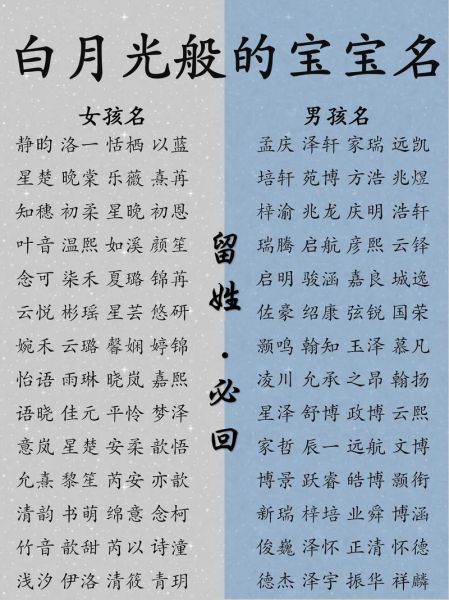 白月光般的宝宝名
女孩名
静昀 洛一 恬栖 以蓝
星楚 晚棠 乐薇 熹苒
知穗 初柔 星晚 初恩
叶音 温熙 如溪 颜笙
念可 柒禾 夏璐 锦苒
云悦 彬瑶 星芸 悠研
婉禾 云璐 馨娴 婷锦
怡语 雨琳 晓岚 嘉熙
语晓 佳元 平怜 梦泽
意岚 星楚 安柔 歆悟
允熹 黎笙 芮安 亦歆
清韵 书萌 绵意 念柯
竹音 歆甜 芮以 诗潼
浅汐 伊洛 清筱 青玥
留姓·必回
男孩名
孟庆 泽轩 家瑞 远凯
培轩 苑博 方浩 兆煜
梓渝 兆龙 庆明 浩轩
瑞腾 启航 彦熙 云铎
启明 骏涵 嘉良 城逸
佐豪 绍康 弦锐 国荣
颢鸣 翰知 玉泽 慕凡
凌川 允承 之昂 翰扬
星泽 舒博 政博 云熙
家哲 辰一 远航 文博
博景 跃睿 皓博 颢衔
新瑞 梓培 业舜 博涵
俊巍 泽怀 正清 怀德
德杰 泽宇 振华 祥麟